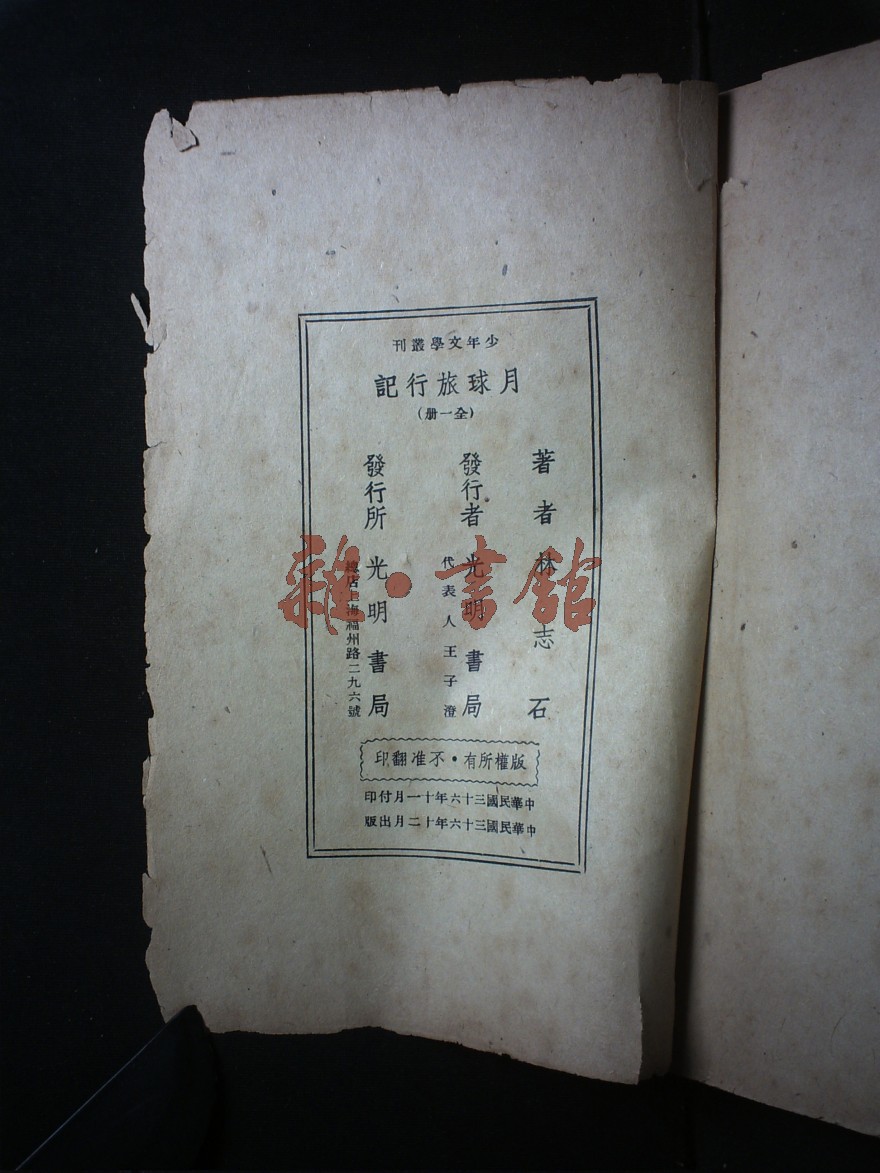 少年文學叢刊
月球旅行記
(全一册)
著者 林志石
發行者 光明書局
代表人王子澄
發行所 光明書局
總店上海福州路二九六號
版權所有·不准翻印
中華民國三十六年十一月付印
中華民國三十六年十二月出版
雜·書館